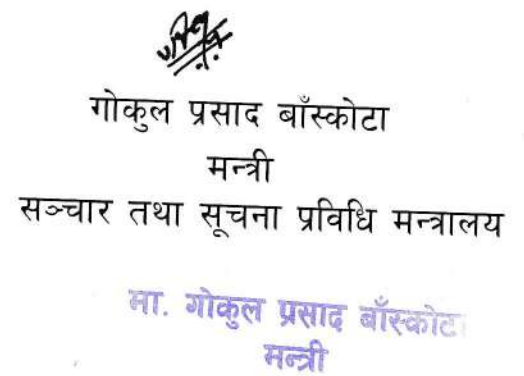 गोकुल प्रसाद बाँस्कोटा
मन्त्री
सञ्चार तथा सूचना प्रविधि मन्त्रालय
मा. गोकुल प्रसाद बाँस्कोटा
मन्त्री